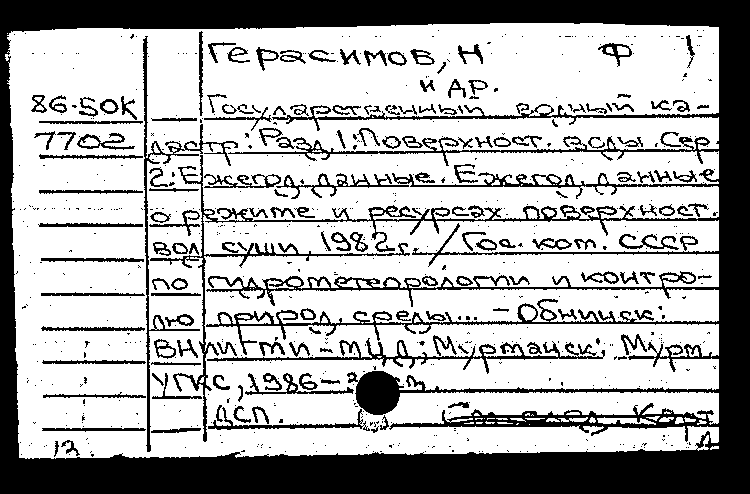 Герасимов, Н Ф
и др.
86-50К Государственный водный ка-
7702 дастр: Разд. 1: Поверхност. воды. Сер.
2: Ежегод. данные. Ежегод. данные
о режиме и ресурсах поверхност.
вод суши, 1982г. / Гос. ком. СССР
по гидрометеорологии и контро-
лю природ. среды... - Обнинск:
ВНИИГМИ-МЦД; Мурманск: Мурм.
УГКС, 1986-
ДСП. См. след. карт